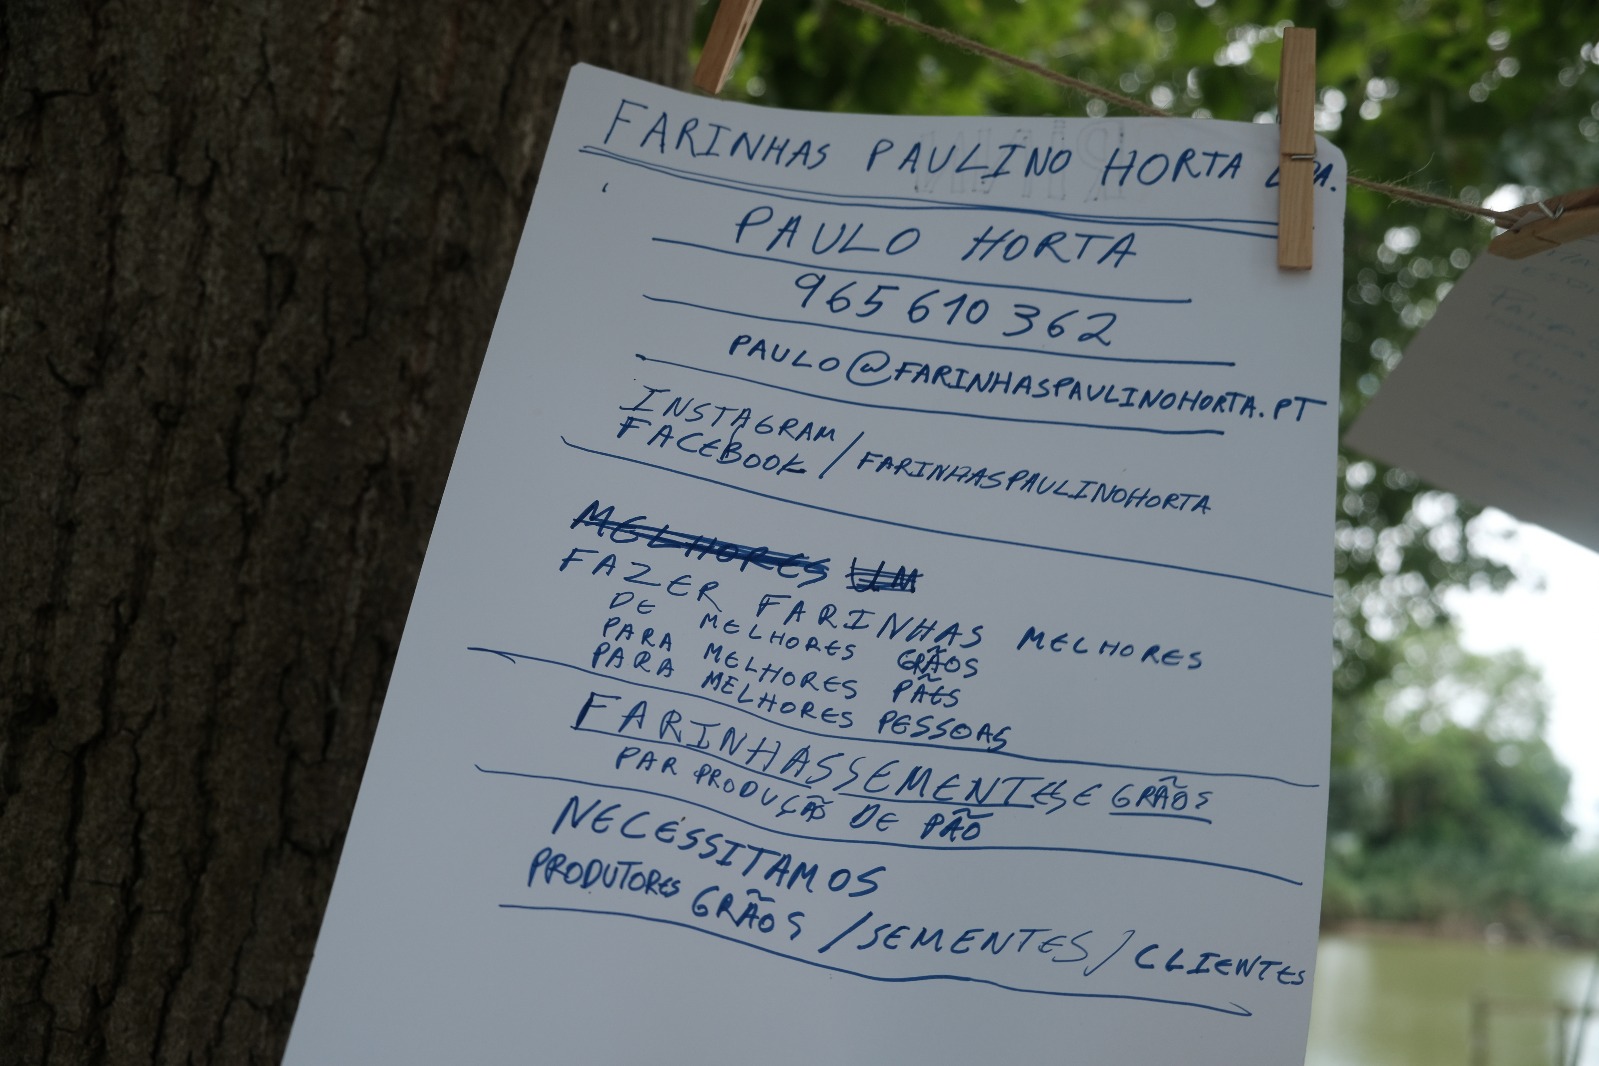 FARINHAS PAULINO HORTA LDA.
PAULO HORTA
965 610 362
PAULO@FARINHASPAULINOHORTA.PT
INSTAGRAM
FACEBOOK / FARINHASPAULINOHORTA
MELHORES UM
FAZER FARINHAS MELHORES
DE MELHORES GRÃOS
PARA MELHORES PÃES
PARA MELHORES PESSOAS
FARINHAS SEMENTES E GRÃOS
PAR PRODUÇÃO DE PÃO
NECESSITAMOS
PRODUTORES GRÃOS / SEMENTES / CLIENTES